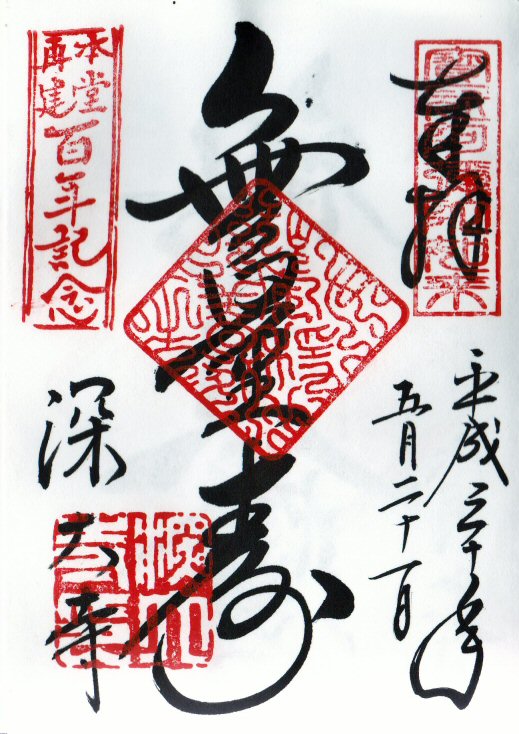 奉拝
平成三十年
五月二十一日
無量寿
本堂
再建
百年記念
深大寺